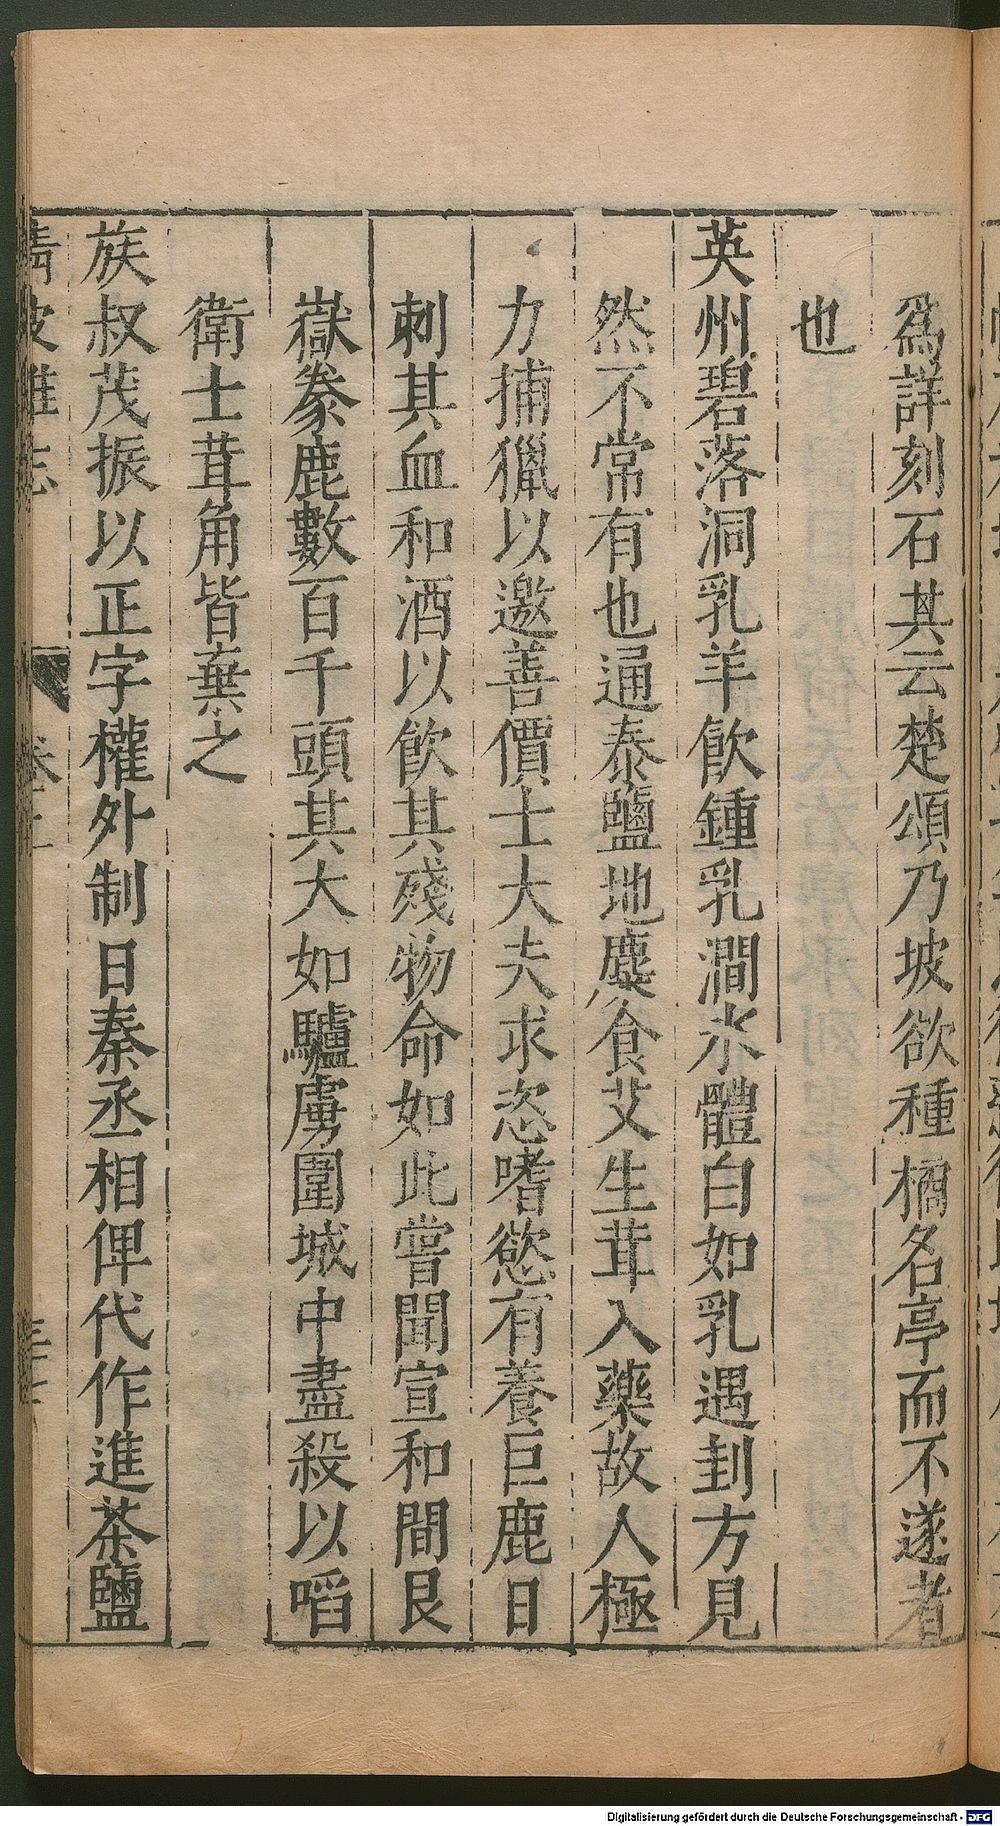 爲詳刻石其云楚頌乃坡欲種橘名亭而不遂者
也
英州碧落洞乳羊飲鍾乳澗水體白如乳遇刲方見
然不常有也通泰鹽地麋食艾生茸入藥故人極
力捕獵以邀善價士大夫求恣嗜慾有養巨鹿日
刺其血和酒以飲其殘物命如此嘗聞宣和間艮
嶽豢鹿數百千頭其大如驢虜圍城中盡殺以啗
衛士茸角皆棄之
族叔茂振以正字權外制日秦丞相俾代作進茶鹽
Digitalisierung gefördert durch die Deutsche Forschungsgemeinschaft - DFG